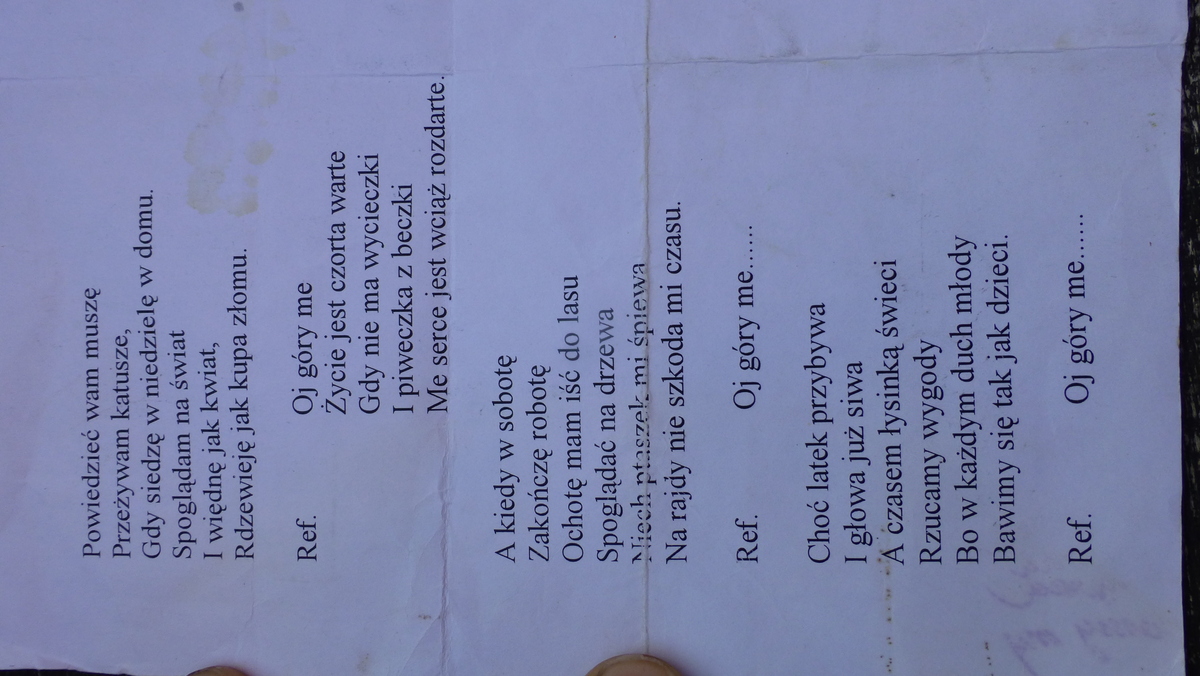 Powiedzieć wam muszę
Przeżywam katusze,
Gdy siedzę w niedzielę w domu.
Spoglądam na świat
I więdnę jak kwiat,
Rdzewieję jak kupa złomu.
Ref. Oj góry me
Życie jest czorta warte
Gdy nie ma wycieczki
I piweczka z beczki
Me serce jest wciąż rozdarte.
A kiedy w sobotę
Zakończę robotę
Ochotę mam iść do lasu
Spoglądać na drzewa
Niech ptaszek mi śpiewa
Na rajdy nie szkoda mi czasu.
Ref. Oj góry me......
Choć latek przybywa
I głowa już siwa
A czasem łysinką świeci
Rzucamy wygody
Bo w każdym duch młody
Bawimy się tak jak dzieci.
Ref. Oj góry me......